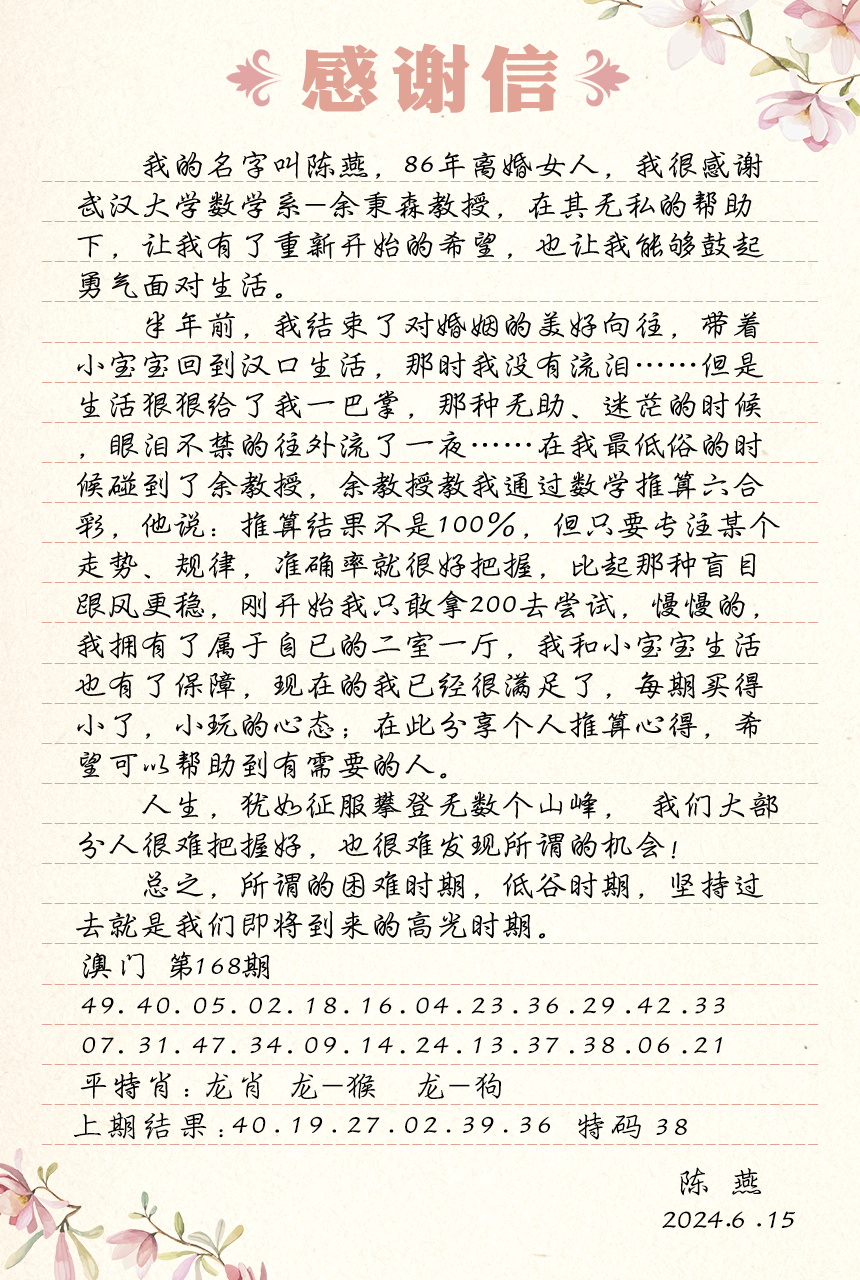 感谢信
我的名字叫陈燕，86年离婚女人，我很感谢
武汉大学数学系—余秉森教授，在其无私的帮助
下，让我有了重新开始的希望，也让我能够鼓起
勇气面对生活。
半年前，我结束了对婚姻的美好向往，带着
小宝宝回到汉口生活，那时我没有流泪……但是
生活狠狠给了我一巴掌，那种无助、迷茫的时候
，眼泪不禁的往外流了一夜……在我最低俗的时
候碰到了余教授，余教授教我通过数学推算六合
彩，他说：推算结果不是100%，但只要专注某个
走势、规律，准确率就很好把握，比起那种盲目
跟风更稳，刚开始我只敢拿200去尝试，慢慢的，
我拥有了属于自已的二室一厅，我和小宝宝生活
也有了保障，现在的我已经很满足了，每期买得
小了，小玩的心态；在此分享个人推算心得，希
望可以帮助到有需要的人。
人生，犹如征服攀登无数个山峰， 我们大部
分人很难把握好，也很难发现所谓的机会！
总之，所谓的困难时期，低谷时期，坚持过
去就是我们即将到来的高光时期。
澳门 第168期
49.40.05.02.18.16.04.23.36.29.42.33
07.31.47.34.09.14.24.13.37.38.06.21
平特肖：龙肖 龙—猴 龙—狗
上期结果：40.19.27.02.39.36 特码 38
陈 燕
2024.6.15